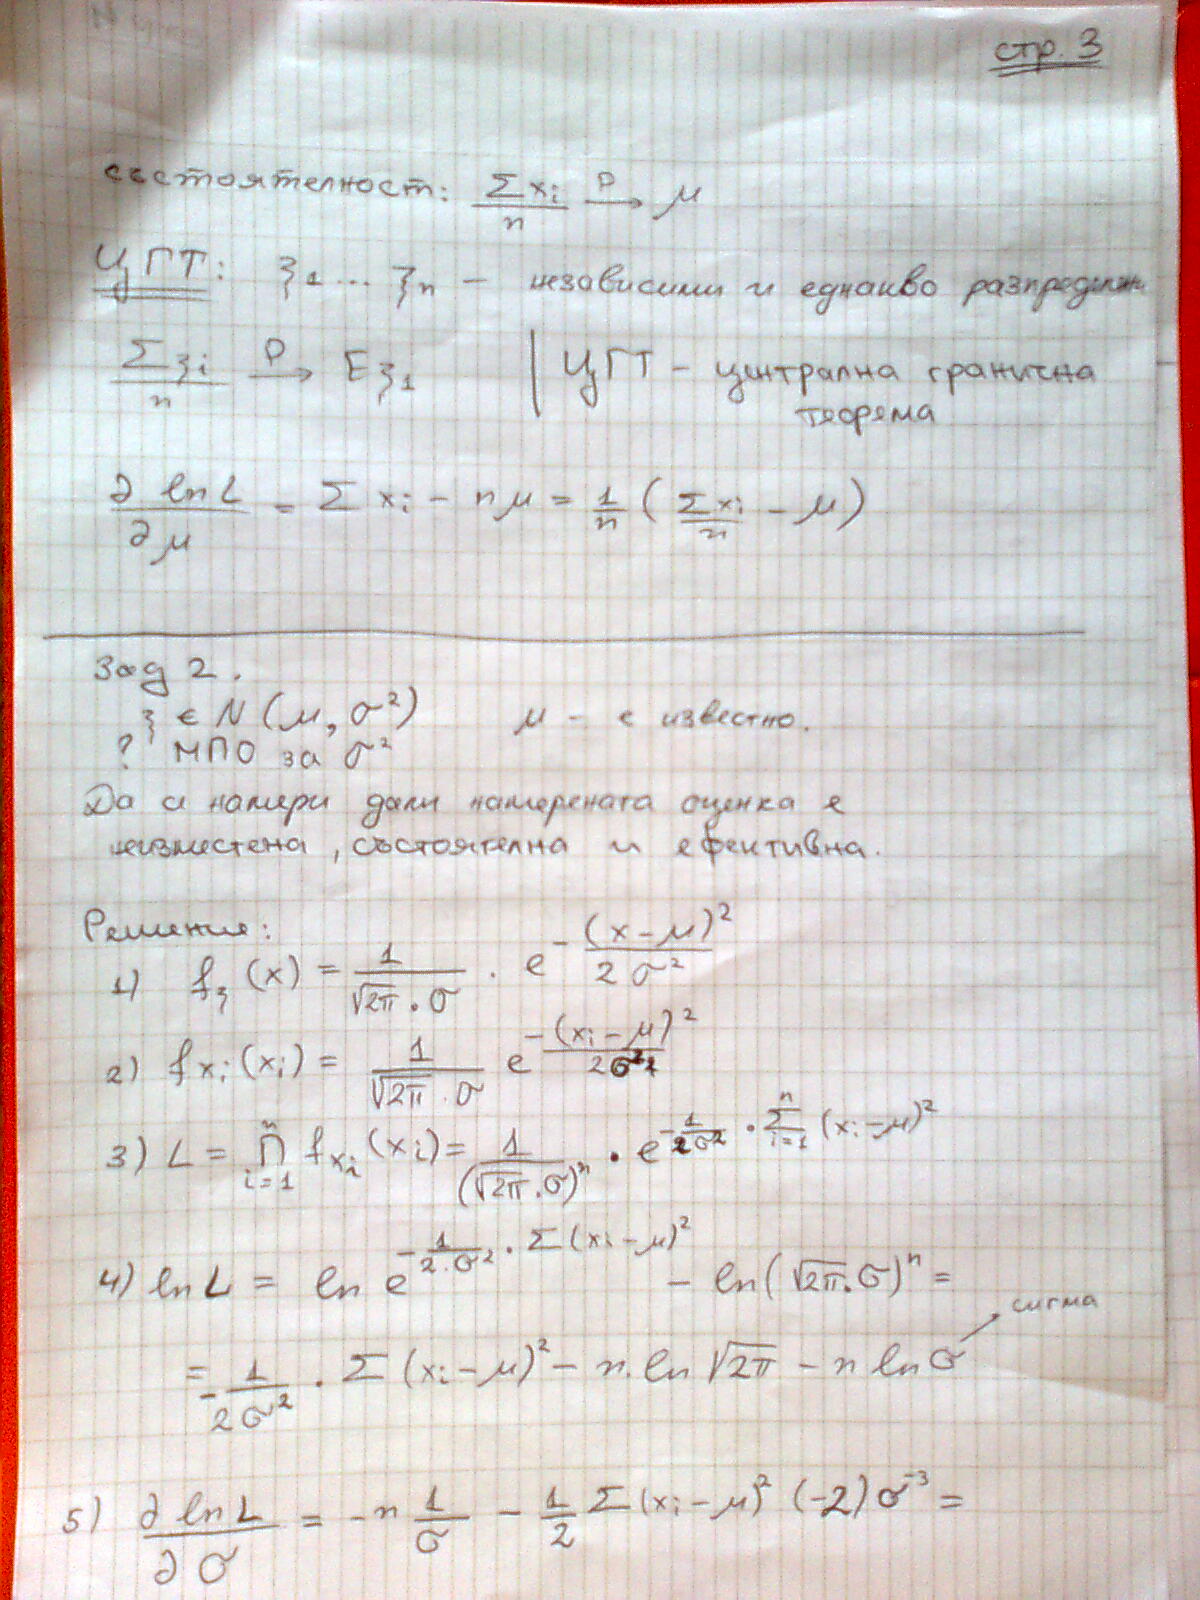 стр. 3
състоятелност: Σxᵢ/n →ᴾ μ
ЦГТ: ξ₁ ... ξₙ – независими и еднакво разпределен
Σξᵢ/n →ᴾ Eξ₁ | ЦГТ – централна гранична
теорема
∂ ln L/∂μ = Σ xᵢ – nμ = 1/n (Σxᵢ/n – μ)
Зад 2.
ξ ∈ N(μ, σ²) μ – е известно.
? МПО за σ²
Да се намери дали намерената оценка е
неизместена, състоятелна и ефективна.
Решение:
1) f_ξ(x) = 1/(√2π . σ) . e^(-(x-μ)²/(2σ²))
2) f_xᵢ(xᵢ) = 1/(√2π . σ) e^(-(xᵢ-μ)²/(2σ²))
3) L = ∏ᵢ₌₁ⁿ f_xᵢ(xᵢ) = 1/(√2π.σ)ⁿ . e^(-1/(2σ²) . Σᵢ₌₁ⁿ(xᵢ-μ)²)
4) ln L = ln e^(-1/(2.σ²) . Σ(xᵢ-μ)²) – ln(√2π.σ)ⁿ =
= -1/(2σ²) . Σ(xᵢ-μ)² – n.ln √2π – n ln σ → сигма
5) ∂ ln L/∂σ = -n 1/σ – 1/2 Σ(xᵢ-μ)² (-2)σ⁻³ =